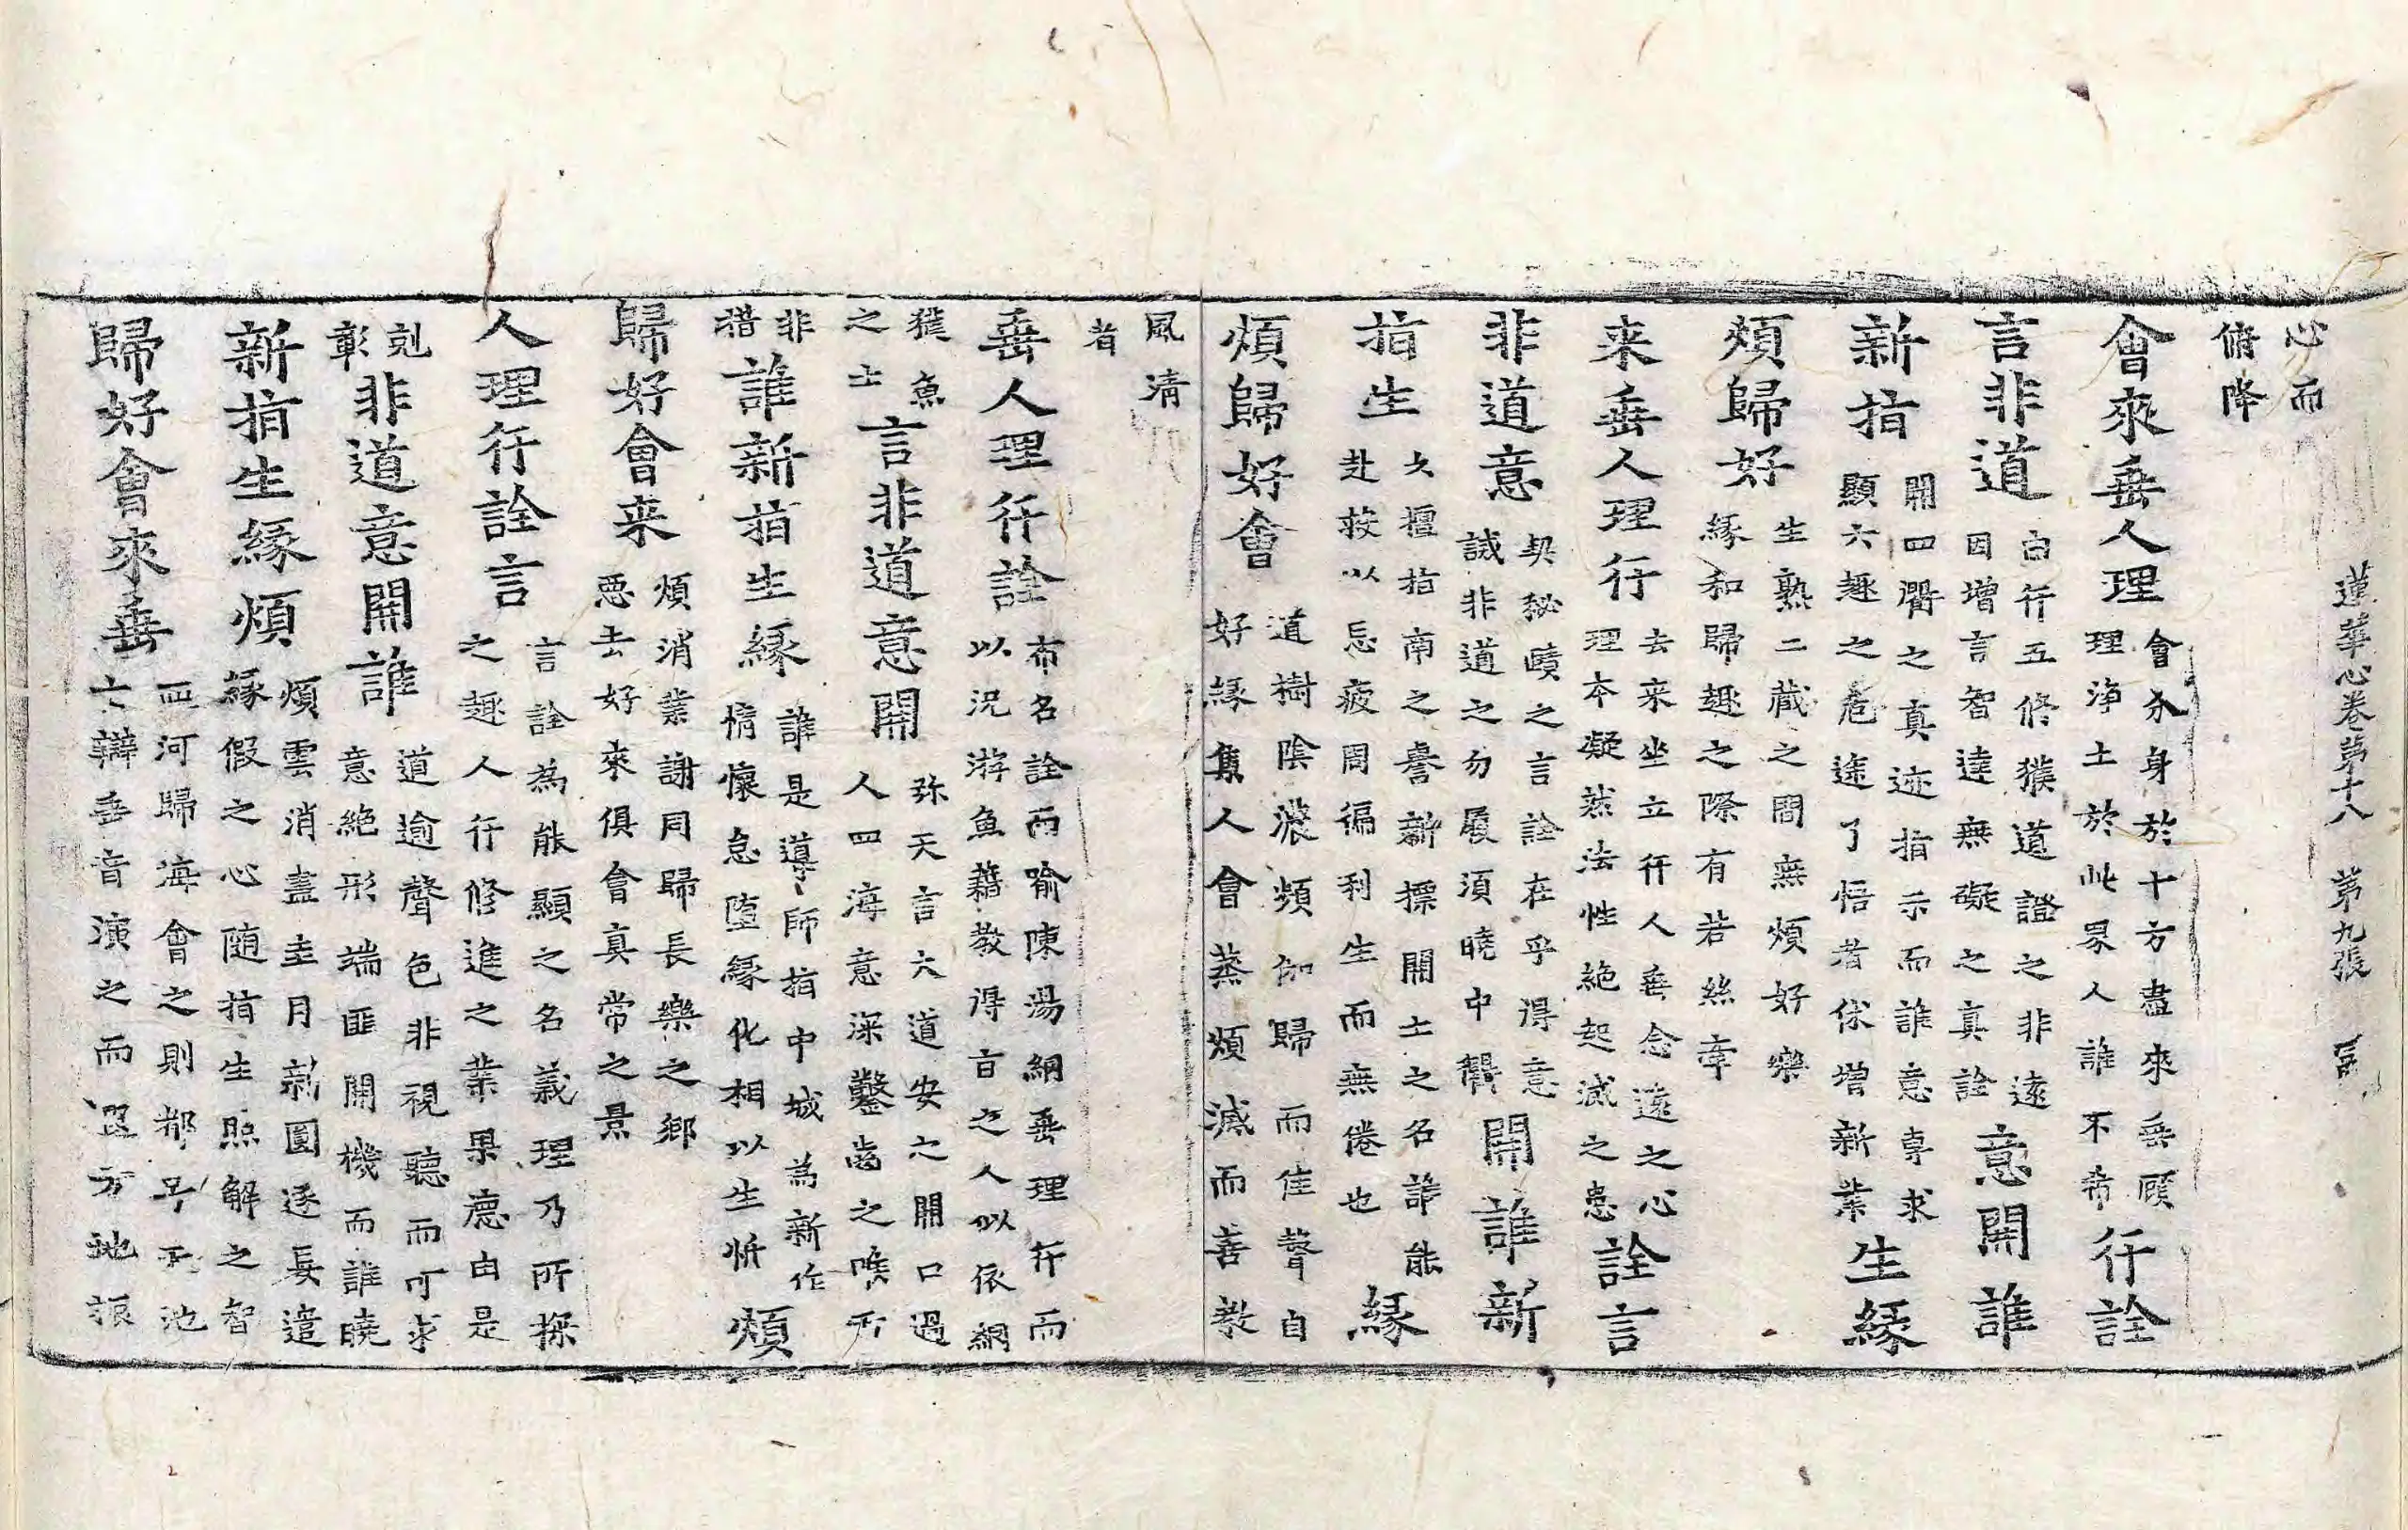 蓮華心卷第十八 第九張
心而
俯降
會來垂人理
會分身於十方盡來垂顧
理淨土於此界人誰不希
行詮
言非道
白行五修獲道證之非遠
因增言智達無礙之真詮
意開誰
新指
開四衢之真迹指示而誰意專求
顯六趣之危途了悟者休增新業
生緣
煩歸好
生熟二藏之間無煩好樂
緣和歸趣之際有若絲牽
来垂人理行
去来坐立行人垂念遠之心
理本凝然法性絶起滅之患
詮言
非道意
契秘賾之言詮在乎得意
誡非道之勿履須曉中
開誰新
指生
久擅指南之譽新摽開士之名誰能
赴救以忘疲周徧利生而無倦也
緣
煩歸好會
道樹陰濃頻伽歸而佳聲自
好緣集人會蒸煩滅而善教
風清
者
垂人理行詮
布名詮而喻陳湯網垂理行而
以況游魚藉教得旨之人似依網
獲魚
之士
言非道意開
弥天言大道安之開口過
人四海意深鑿齒之喉
非
措
誰新指生緣
誰是導師指中城為新作
情懷怠墮緣化相以生忻
煩
歸好會来
煩消業謝同歸長樂之鄉
惡去好來俱會真常之景
人理行詮言
言詮為能顯之名義理乃所探
之趣人行修進之業果德由是
剋
彰
非道意開誰
道逾聲色非視聽而可求
意絶形端匪開機而誰曉
新指生緣煩
煩雲消盡圭月新圓逐妄遣
緣假之心随指生照解之智
歸好會來垂
四河歸海會之則都
六辯垂音演之而